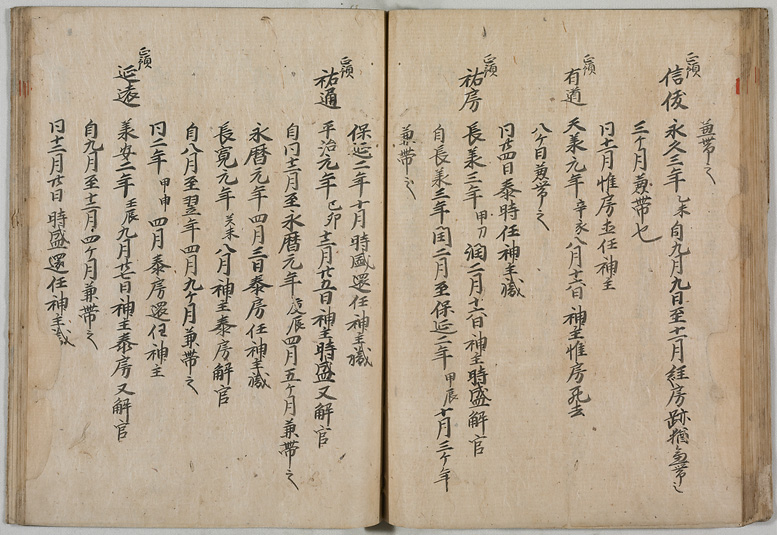 兼帯之
正預
信俊 永久三年乙未自九月九日至十一月経房跡猶兼帯之
三ケ月兼帯也
同十一月惟房并任神主
正預
有道 天承元年辛亥八月十六日神主惟房死去
八ケ日兼帯之
同廿四日泰時任神主職
正預
祐房 長承三年甲刀潤二月十六日神主時盛解官
自長承三年閏二月至保延二年甲辰十月三ケ年
兼帯之
保延二年十月時盛還任神主職
正預
祐通 平治元年己卯十二月廿五日神主時盛又解官
自同十二月至永暦元年庚辰四月五ケ月兼帯之
永暦元年四月三日泰房任神主職
長寛元年癸未八月神主泰房解官
自八月至翌年四月九ケ月兼帯之
同二年甲申四月泰房還任神主
正預
延遠 承安二年壬辰九月廿七日神主泰房又解官
自九月至十二月四ケ月兼帯之
同十二月廿日時盛還任神主職